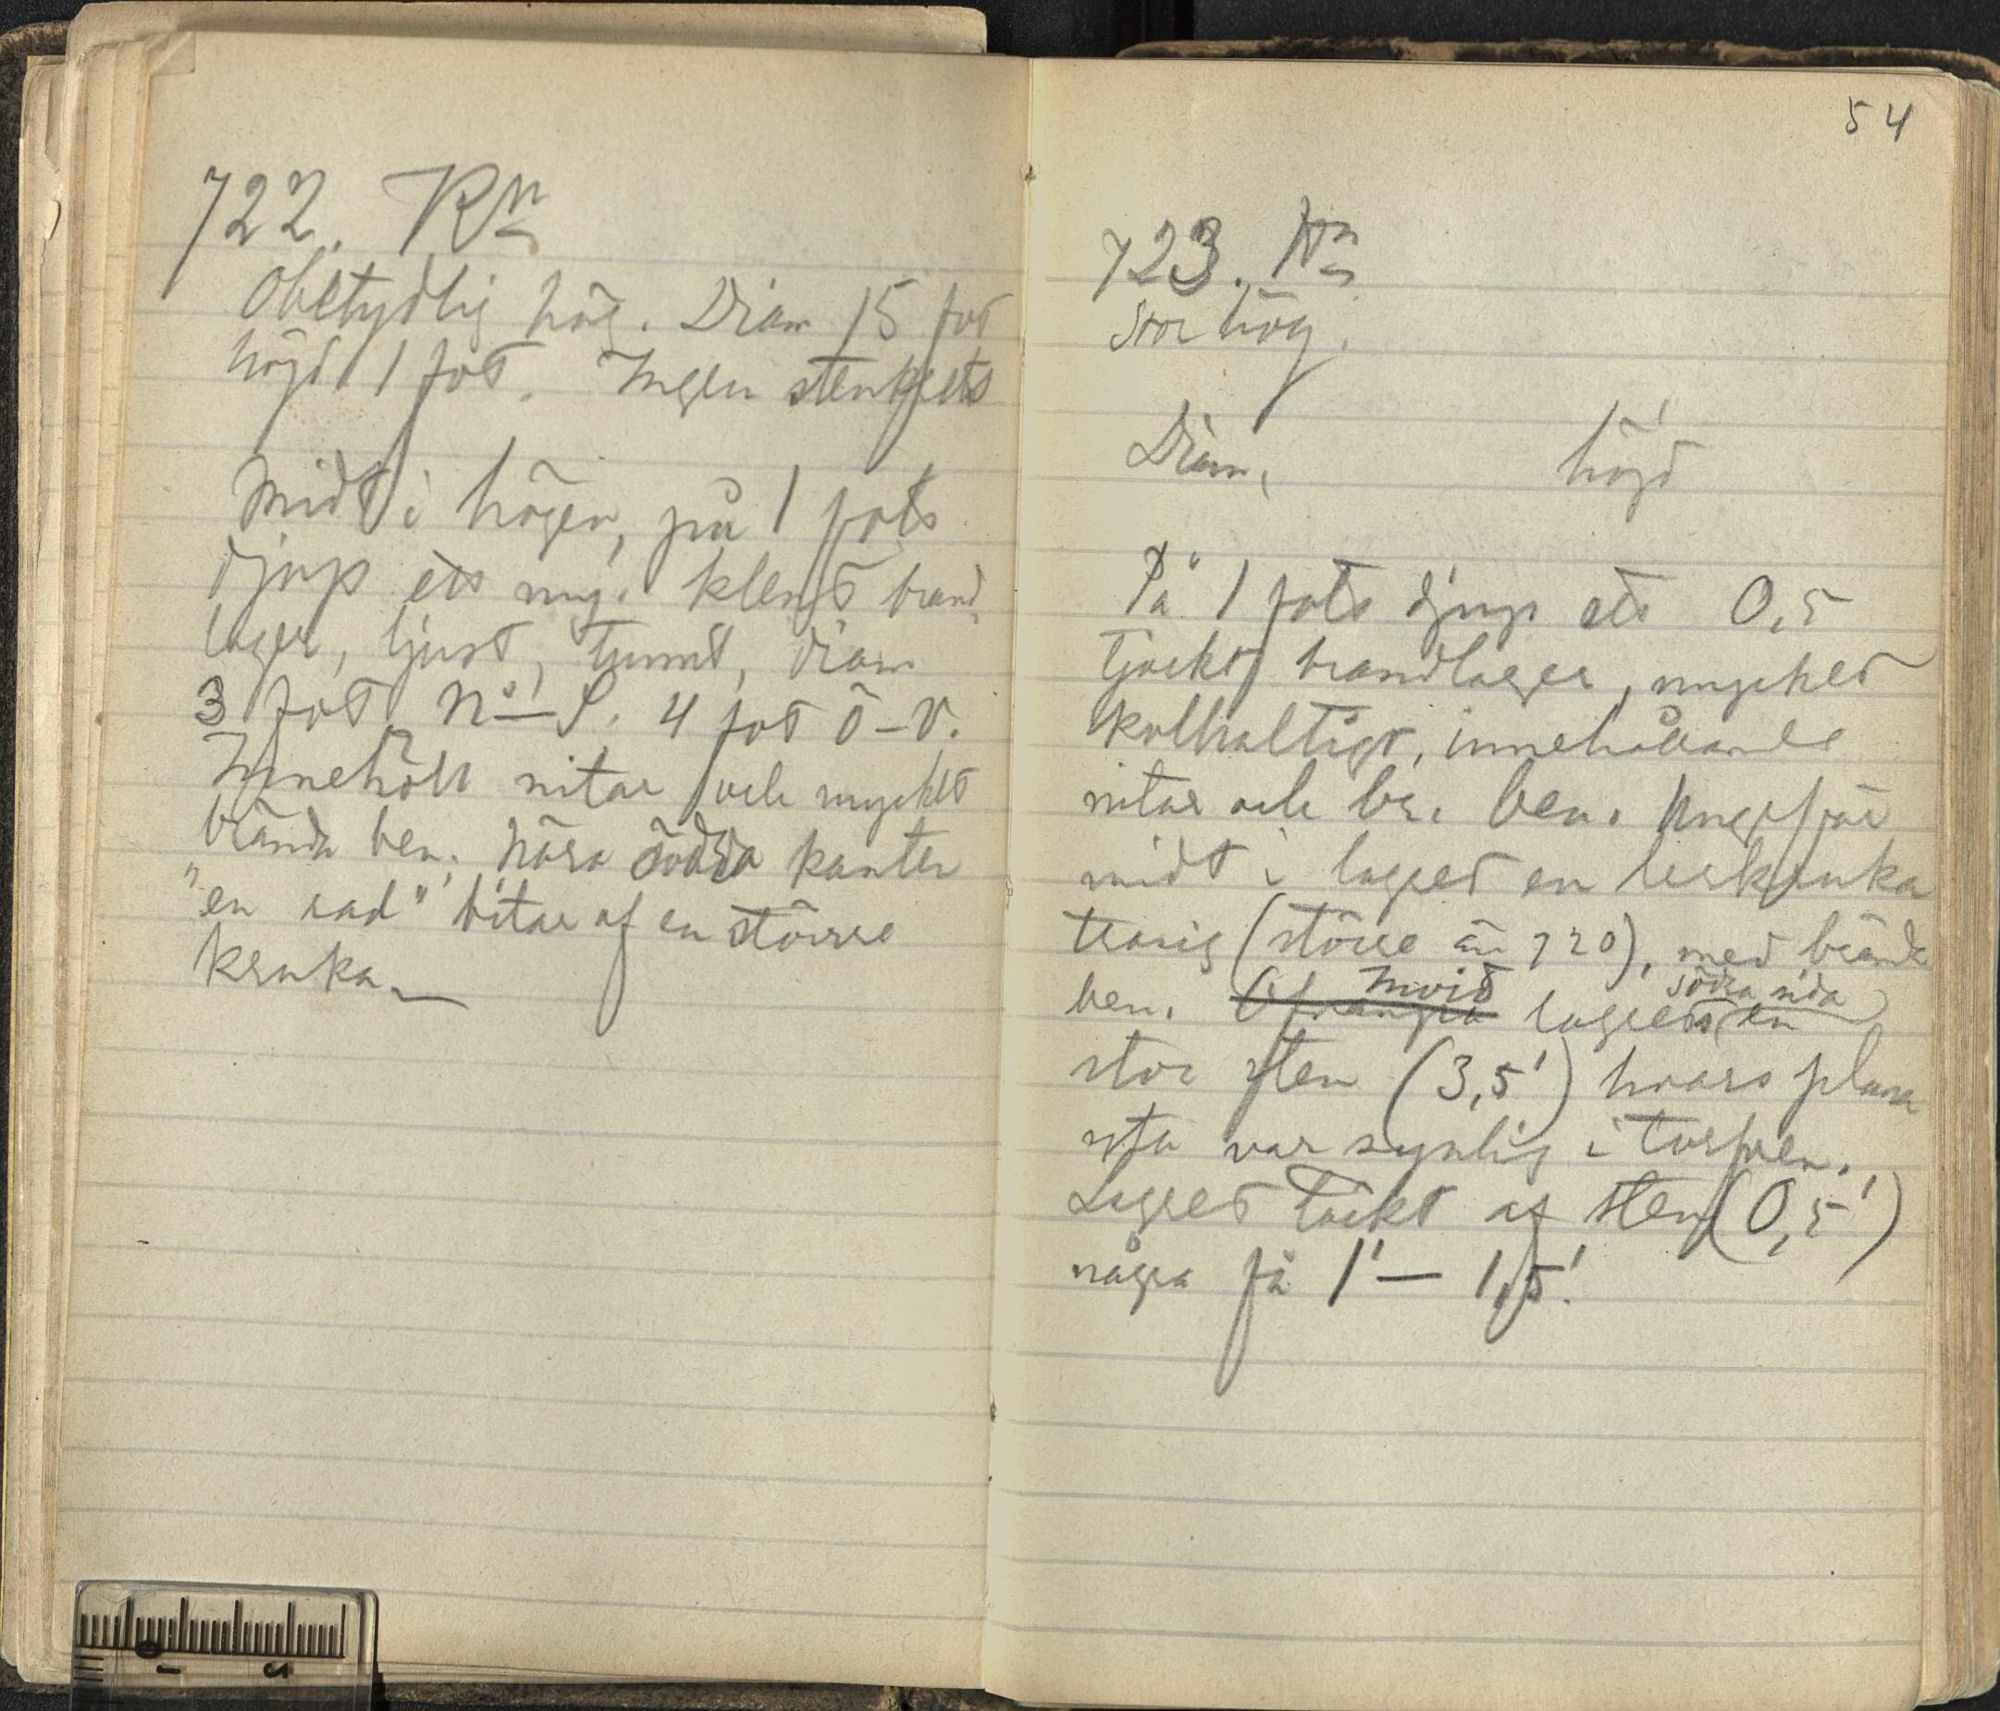 722. Rn
Obetydlig hög. Diam 15 fot
höjd 1 fot. Ingen stenkrets
Midt i högen, på 1 fots
djup ett myc. klent brand
lager, ljust, tunnt, diam
3 fot N–S. 4 fot Ö–V.
Innehöll nitar och mycket
brända ben. Nära södra kanten
"en rad" bitar af en större
kruka
54
723.
Stor hög.
Diam, höjd
På 1 fots djup ett 0,5
tjockt brandlager, mycket
kolhaltigt, innehållande
nitar och br. ben. Ungefär
midt i lagret en lerkruka
trasig (större än 720), med brända
invid södra sida
ben. lagrets en
stor sten (3,5') hvars plana
yta var synlig i torfven.
Lagret täckt af sten (0,5')
några få 1' — 1,5'.